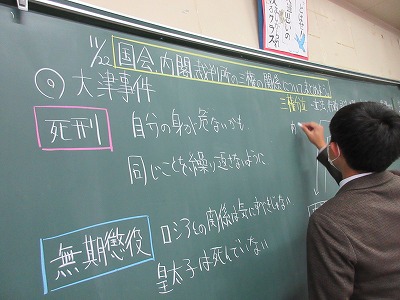 11/22 国会、内閣、裁判所の三権の関係についてまとめよう。
◎ 大津事件
三権分立
死刑
自分の身が危ないかも
同じことを繰り返さないように
無期懲役
ロシアとの関係は気にすべきじゃない
皇太子は死んでいない